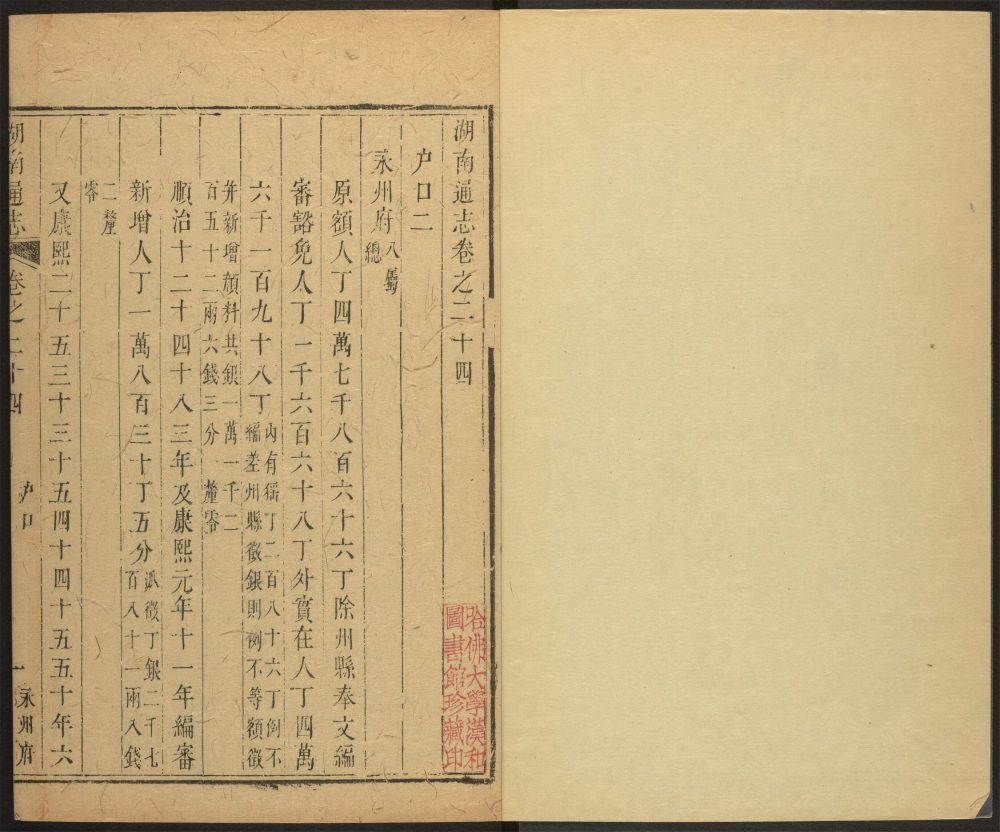 湖南通志卷之二十四
户口二
永州府八屬總
原額人丁四萬七千八百六十六丁除州縣奉文編
審豁免人丁一千六百六十八丁外實在人丁四萬
六千一百九十八丁內有猺丁二百八十六丁例不
編差州縣徵銀則例不等額徵
并新增顏料共銀一萬一千二
百五十二兩六錢三分一釐零
順治十二十四十八三年及康熙元年十一年編審
新增人丁一萬八百三十丁五分派徵丁銀二千七
百八十一兩八錢
二釐
零
又康熙二十五三十三十五四十四十五五十年六
湖南通志
卷之二十四
户口
一
永州府
哈佛大學漢和
圖書館珍藏印